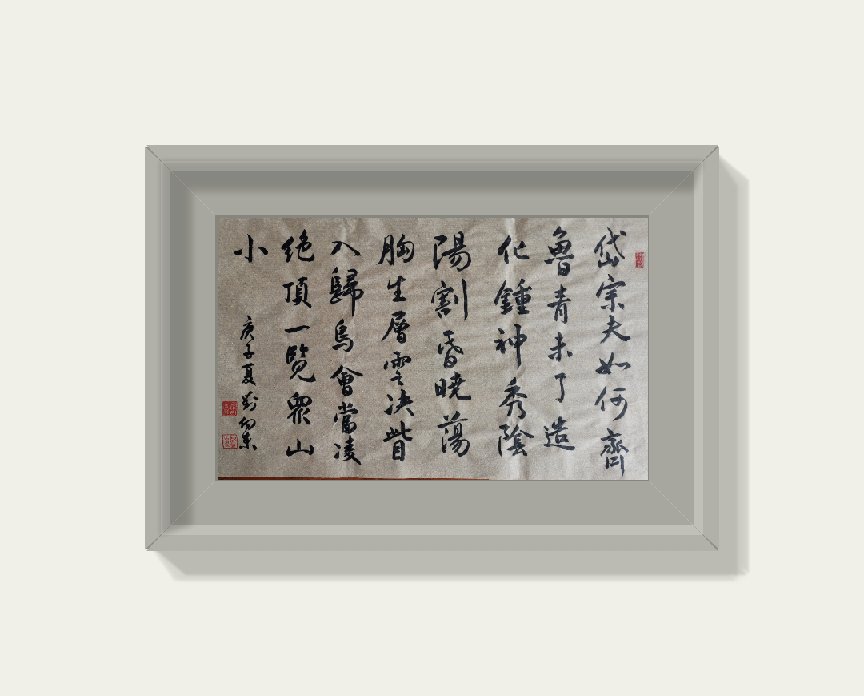 岱宗夫如何齊
魯青未了造
化鍾神秀陰
陽割昏曉蕩
胸生層雲决眥
入歸鳥會當凌
絕頂一覽眾山
小
庚子夏